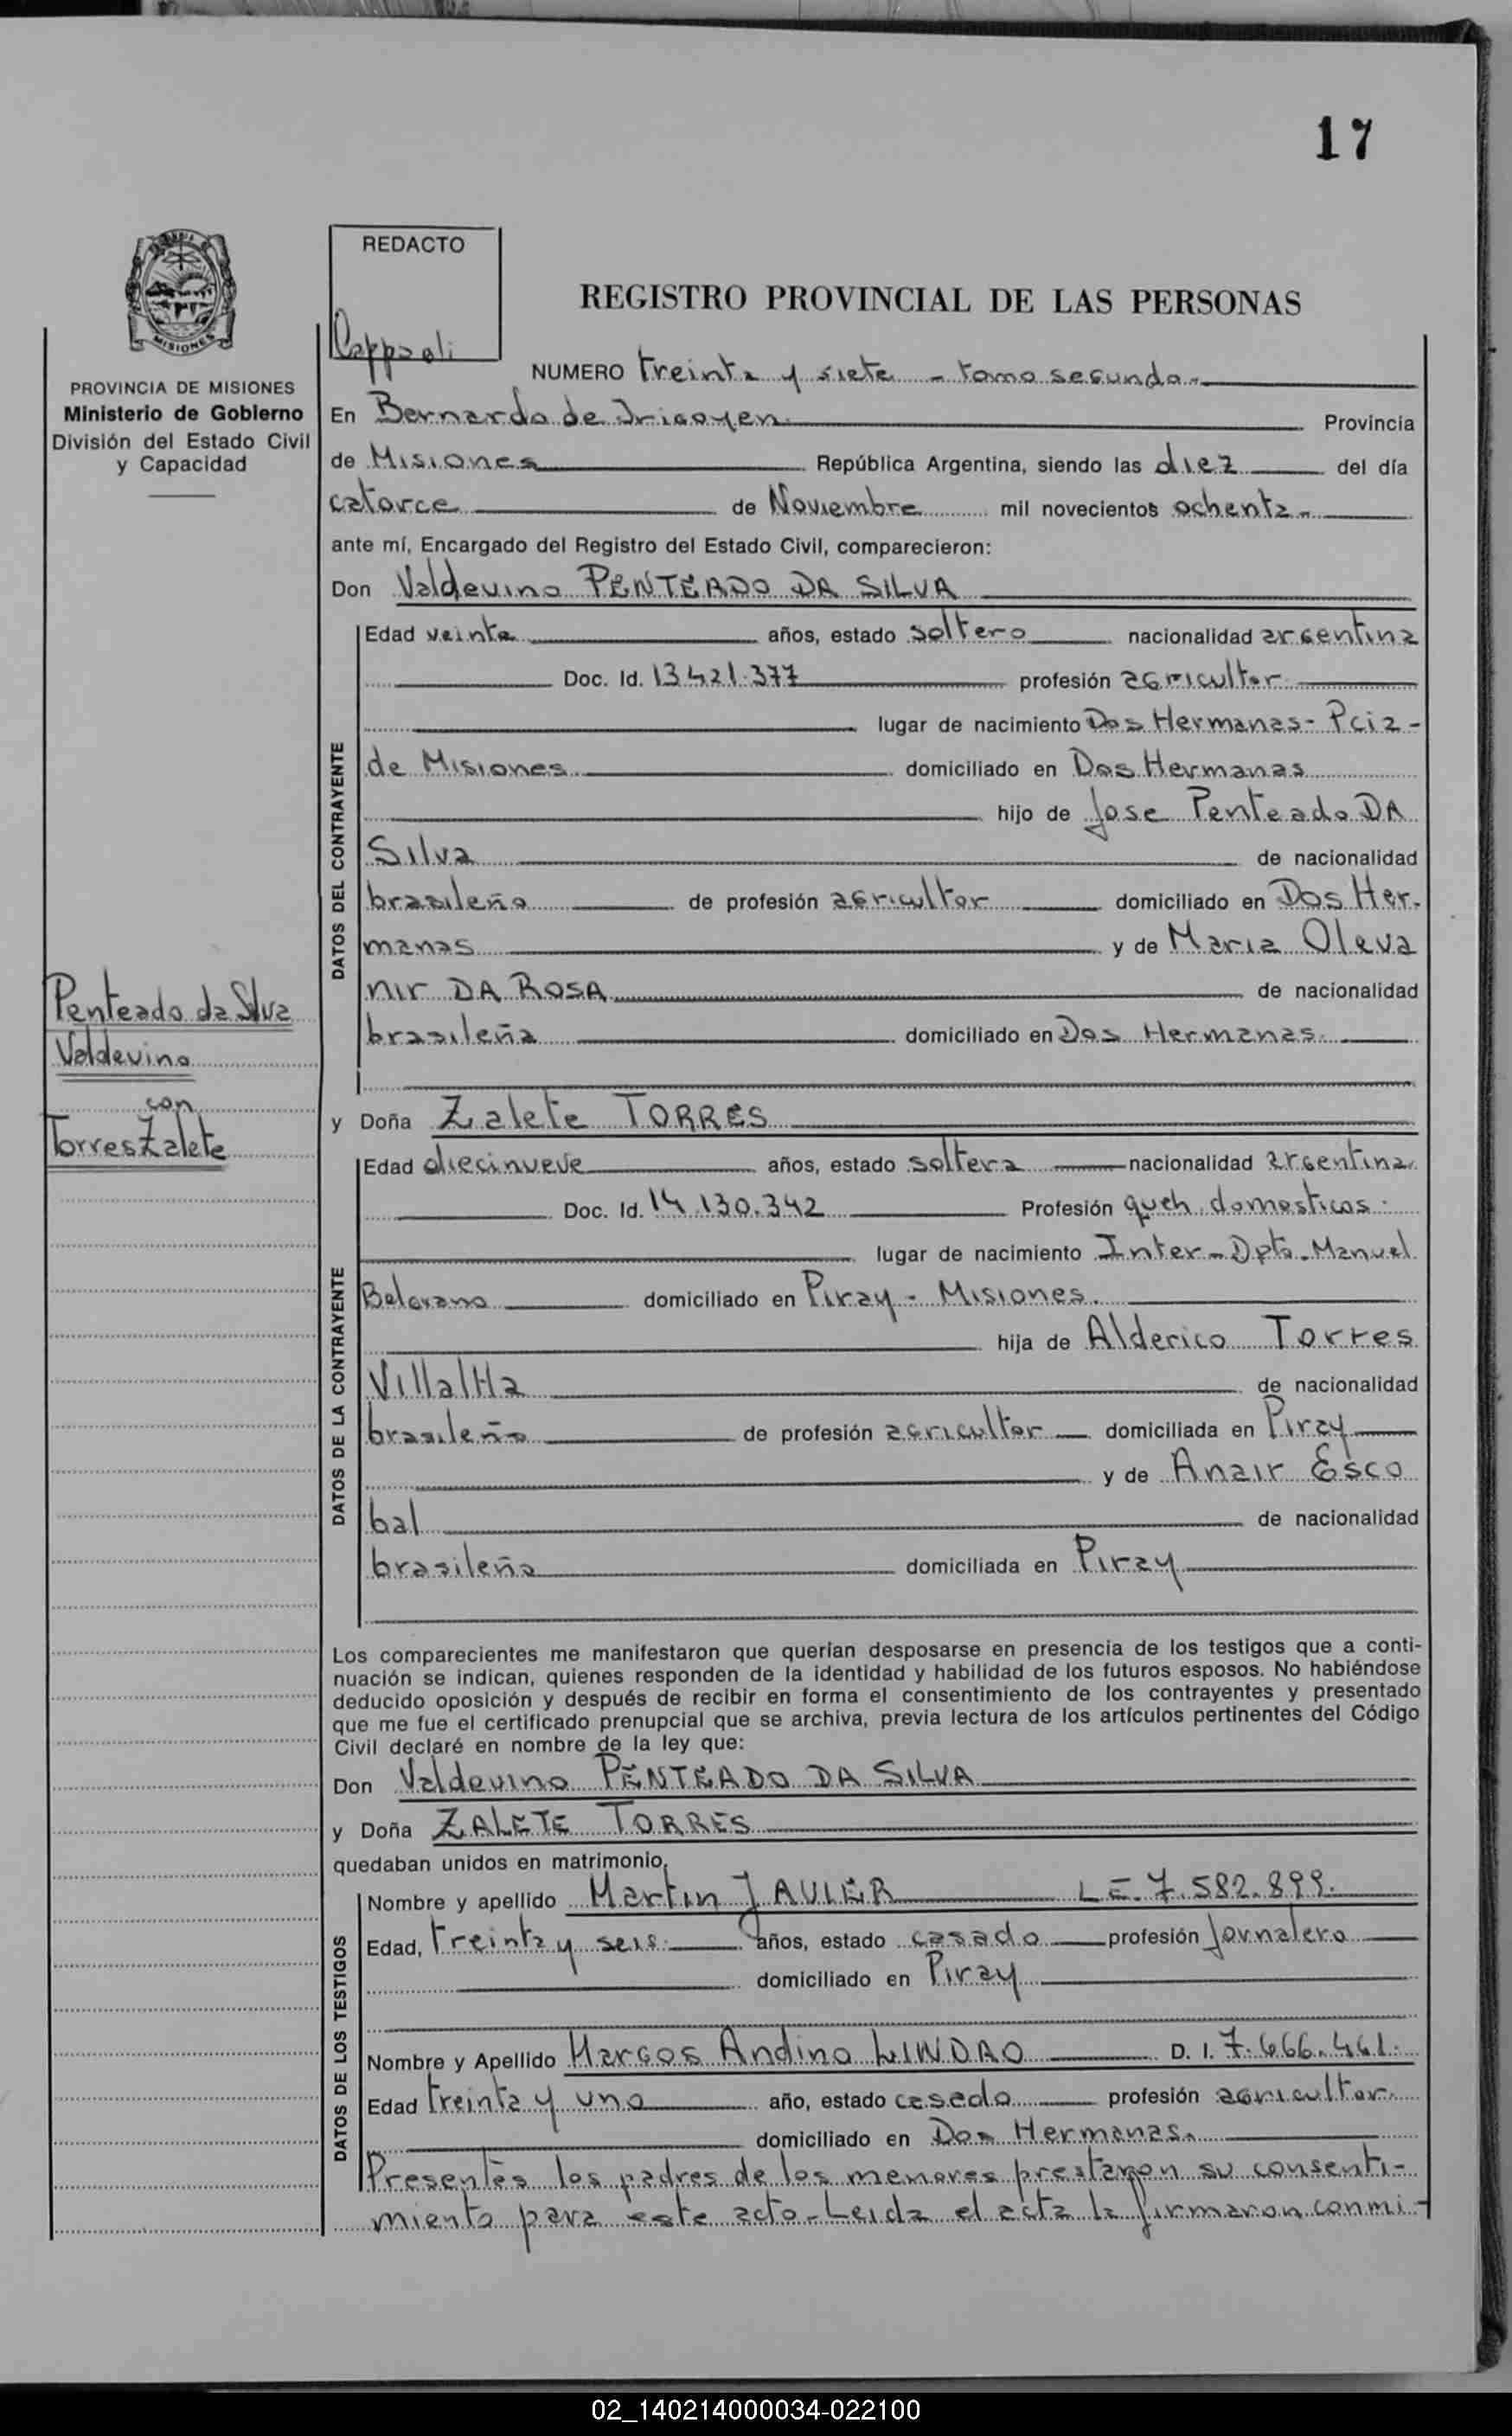 17
REDACTO
REGISTRO PROVINCIAL DE LAS PERSONAS
MISIONES
PROVINCIA DE MISIONES
Ministerio de Gobierno
División del Estado Civil
y Capacidad
NUMERO treinta y siete - tomo segundo-
En Bernardo de Irigoyen Provincia
de Misiones República Argentina, siendo las diez del día
catorce de Noviembre mil novecientos ochenta-
ante mí, Encargado del Registro del Estado Civil, comparecieron:
Don Valdevino PENTEADO DA SILVA
DATOS DEL CONTRAYENTE
Edad veinte años, estado soltero nacionalidad argentina
Doc. Id. 13421.377 profesión agricultor
lugar de nacimiento Dos Hermanas- Pcia-
de Misiones domiciliado en Dos Hermanas
hijo de Jose Penteado DA
Silva de nacionalidad
brasileño de profesión agricultor domiciliado en Dos Her-
manas y de Maria Oleva
nir DA ROSA de nacionalidad
brasileña domiciliado en Dos Hermanas.
Penteado da Silva
Valdevino
con
Torres Zalete
y Doña Zalete TORRES
DATOS DE LA CONTRAYENTE
Edad diecinueve años, estado soltera nacionalidad argentina
Doc. Id. 14.130.342 Profesión queh. domesticos.
lugar de nacimiento Inter-Dpto-Manuel
Belgrano domiciliado en Piray - Misiones.
hija de Alderico Torres
Villaltta de nacionalidad
brasileño de profesión agricultor domiciliada en Piray
y de Anair Esco
bal de nacionalidad
brasileña domiciliada en Piray
Los comparecientes me manifestaron que querían desposarse en presencia de los testigos que a conti-
nuación se indican, quienes responden de la identidad y habilidad de los futuros esposos. No habiéndose
deducido oposición y después de recibir en forma el consentimiento de los contrayentes y presentado
que me fue el certificado prenupcial que se archiva, previa lectura de los artículos pertinentes del Código
Civil declaré en nombre de la ley que:
Don Valdevino PENTEADO DA SILVA
y Doña ZALETE TORRES
quedaban unidos en matrimonio.
DATOS DE LOS TESTIGOS
Nombre y apellido Martin JAVIER LE. 7.582.899.
Edad, treinta y seis. años, estado casado profesión Jornalero
domiciliado en Piray
Nombre y Apellido Marcos Andino LINDAO D. I. 7.666.461.
Edad treinta y uno año, estado casado profesión agricultor.
domiciliado en Dos Hermanas.
Presentes los padres de los menores prestaron su consenti-
miento para este acto-Leida el acta la firmaron conmi-
02_140214000034-022100